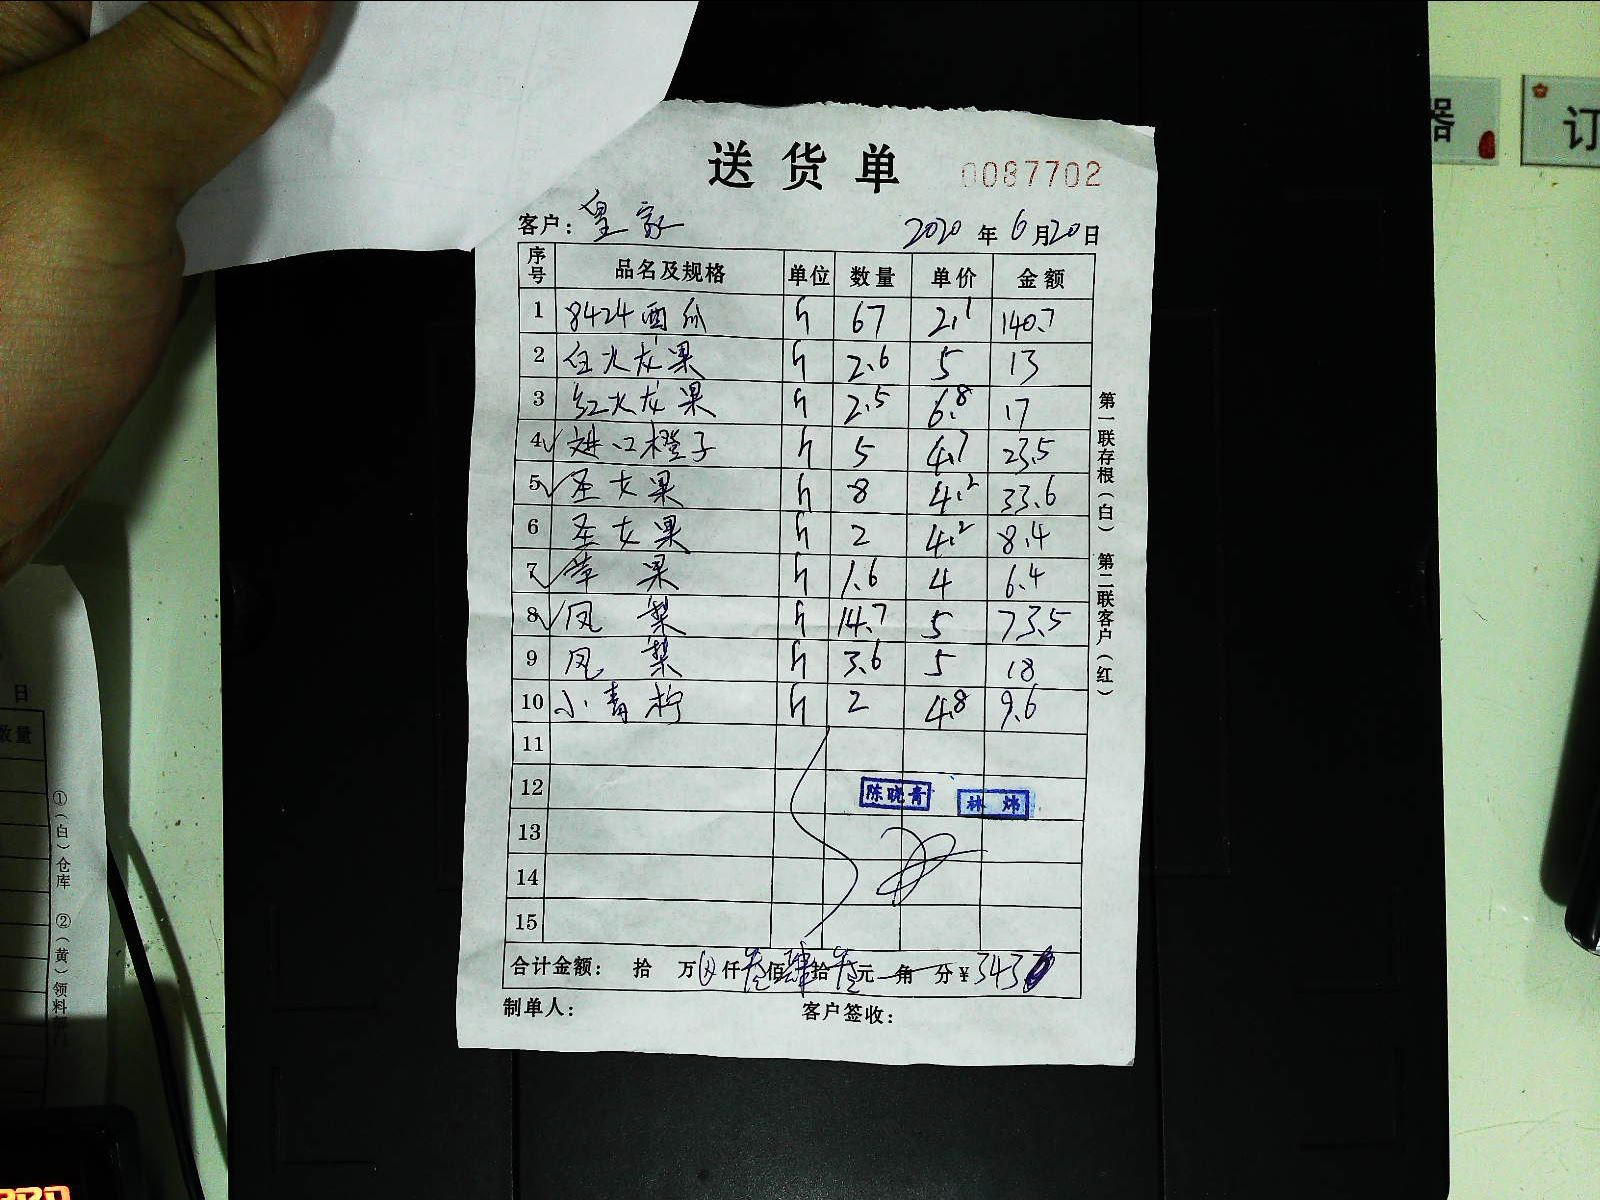 送货单 0087702
客户: 皇家 2020年6月20日
序号 品名及规格 单位 数量 单价 金额
1 8424西瓜 斤 67 2.1 140.7
2 白火龙果 斤 2.6 5 13
3 红火龙果 斤 2.5 6.8 17
4 进口橙子 斤 5 4.7 23.5
5 圣女果 斤 8 4.2 33.6
6 圣女果 斤 2 4.2 8.4
7 苹果 斤 1.6 4 6.4
8 凤梨 斤 14.7 5 73.5
9 凤梨 斤 3.6 5 18
10 小青柠 斤 2 4.8 9.6
11
12 陈晓青 林炜
13
14
15
合计金额: 拾 万 仟叁佰肆拾叁元 角 分¥343
制单人: 客户签收:
第一联存根(白) 第二联客户(红)
器
订
日
数量
①(白)仓库 ②(黄)领料部门